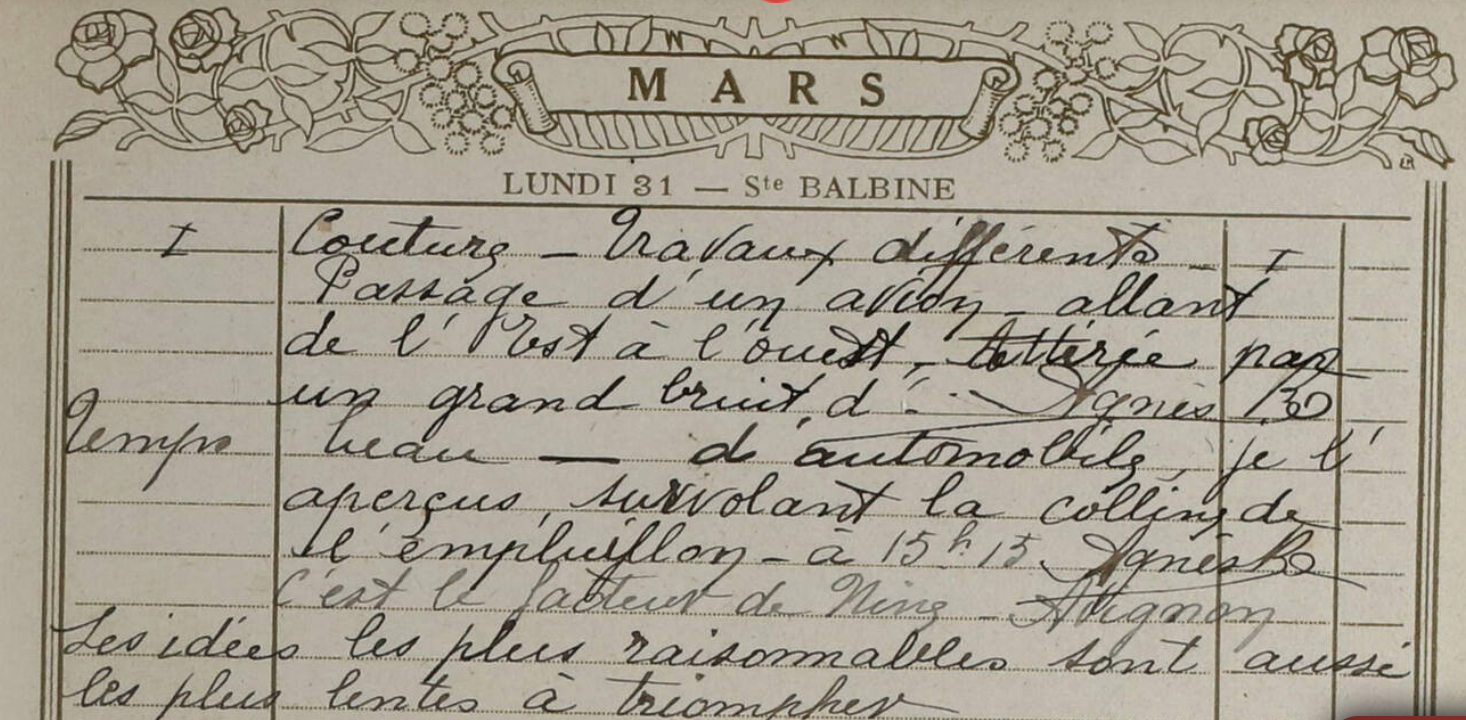 MARS
LUNDI 31 — Ste BALBINE
I Couture — Travaux différents — I
Passage d'un avion — allant
de l'Est à l'ouest, attirée par
un grand bruit, d' Agnès B
Temps beau — d'automobile, je l'
aperçus, survolant la colline de
l'empluillon — à 15h 15 Agnès B
C'est le facteur de Nine — Avignon
Les idées les plus raisonnables sont aussi
les plus lentes à triompher